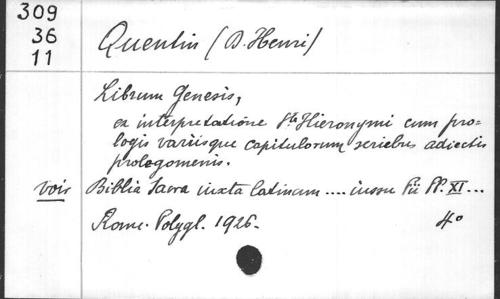 309
36
11
Quentin (D. Henri)
Librum Genesis,
ex interpretatione Sti Hieronymi cum pro=
logis variisque capitulorum seriebus adiectis
prolegomenis.
voir Biblia Sacra iuxta latinam .... iussu Pii PP. XI ...
Rome. Polygl. 1926. 4°